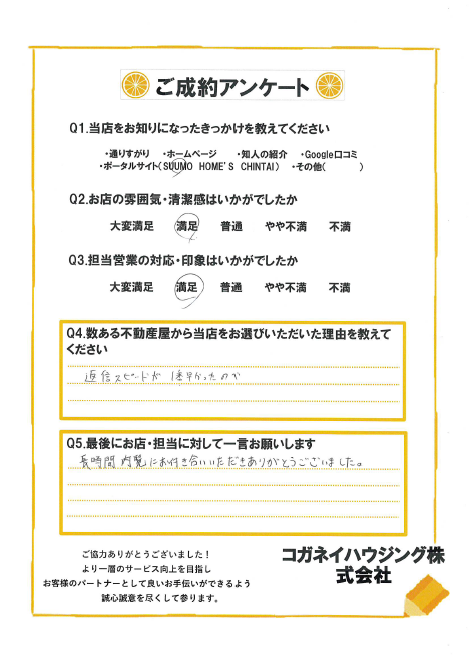 ご成約アンケート
Q1.当店をお知りになったきっかけを教えてください
・通りすがり ・ホームページ ・知人の紹介 ・Google口コミ
・ポータルサイト(SUUMO HOME'S CHINTAI) ・その他( )
Q2.お店の雰囲気・清潔感はいかがでしたか
大変満足 満足 普通 やや不満 不満
Q3.担当営業の対応・印象はいかがでしたか
大変満足 満足 普通 やや不満 不満
Q4.数ある不動産屋から当店をお選びいただいた理由を教えて
ください
返信スピードが 1番早かったのが
Q5.最後にお店・担当に対して一言お願いします
長時間内覧にお付き合いいただきありがとうございました。
ご協力ありがとうございました！
より一層のサービス向上を目指し
お客様のパートナーとして良いお手伝いができるよう
誠心誠意を尽くして参ります。
コガネイハウジング株
式会社